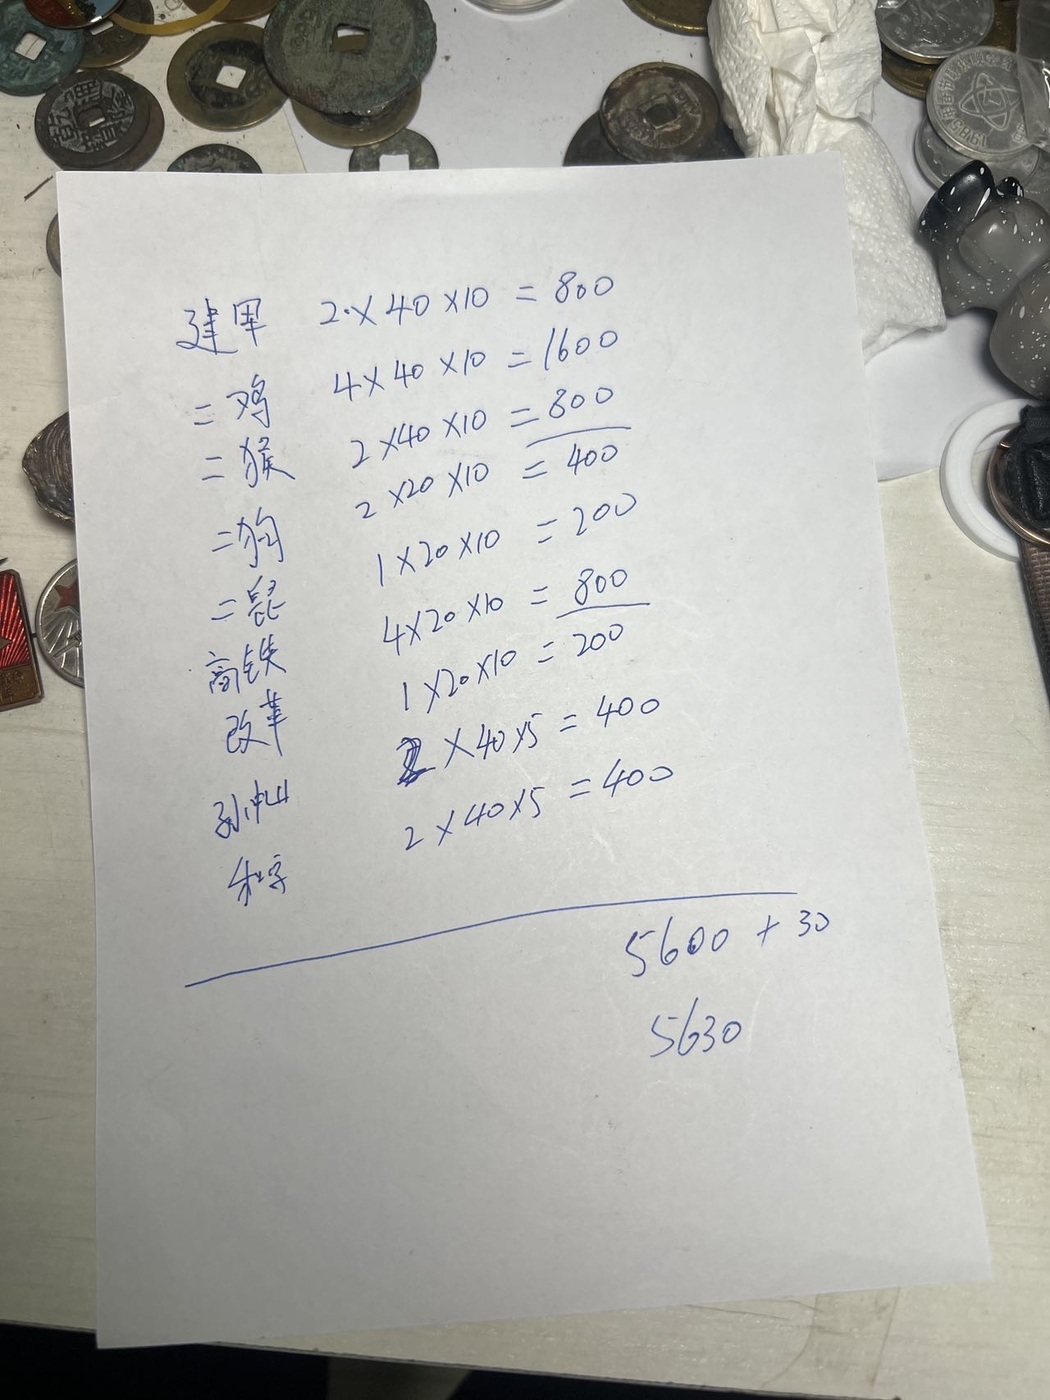 建军 2×40×10=800
二鸡 4×40×10=1600
二猴 2×40×10=800
二狗 2×20×10=400
二鼠 1×20×10=200
高铁 4×20×10=800
改革 1×20×10=200
孙中山 2×40×5=400
和字 2×40×5=400
5600+30
5630